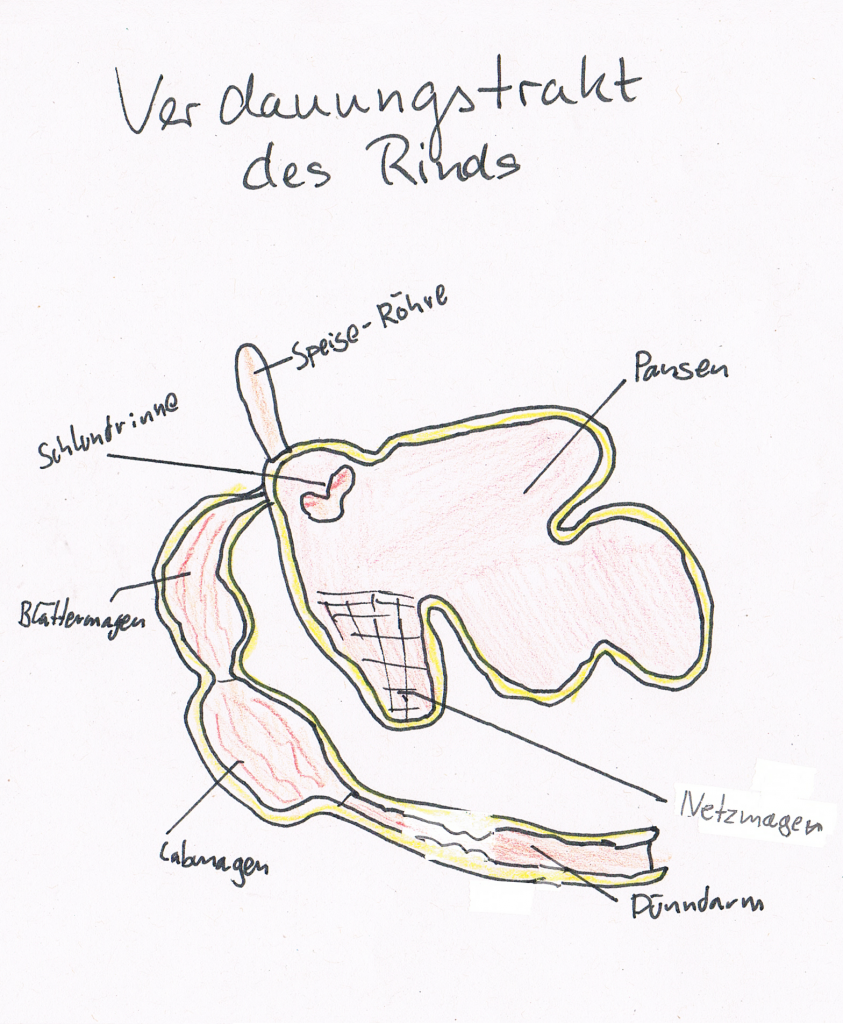 Verdauungstrakt
des Rinds
Speise-Röhre
Pansen
Schlundrinne
Blättermagen
Netzmagen
Labmagen
Dünndarm